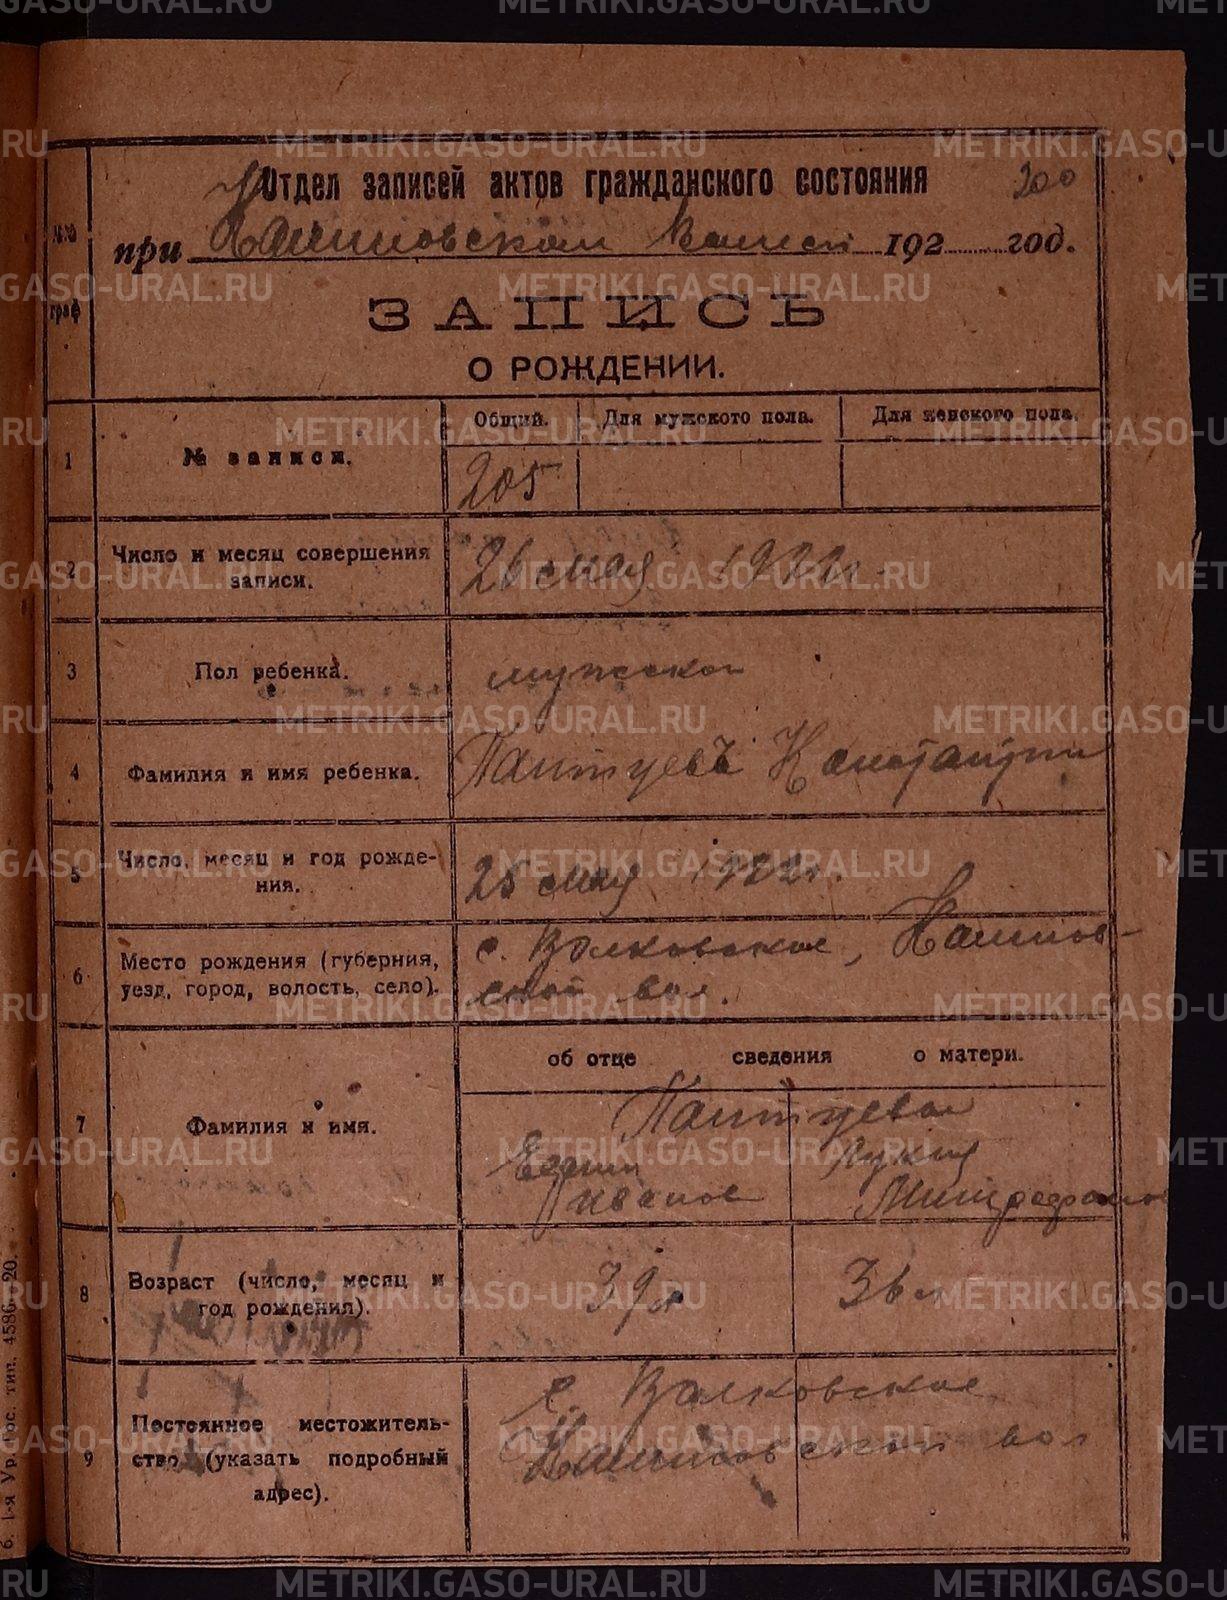 METRIKI.GASO-URAL.RU
Отдел записей актов гражданского состояния 200
№№ граф
при 192 год.
ЗАПИСЬ
О РОЖДЕНИИ.
1 № записи. Общий. Для мужского пола. Для женского пола.
205
2 Число и месяц совершения записи. 26 мая 1922 г.
3 Пол ребенка. мужской
4 Фамилия и имя ребенка. Константин
5 Число, месяц и год рождения. 25 мая 1922 г.
6 Место рождения (губерния, уезд, город, волость, село). с. Волковское,
ской вол.
об отце сведения о матери.
7 Фамилия и имя.
Иванов Митрофанов
8 Возраст (число, месяц и год рождения). 39 л 36 л
9 Постоянное местожительство (указать подробный адрес). с. Волковское
вол
б. 1-я Ур. Гос. тип. 4586—20.